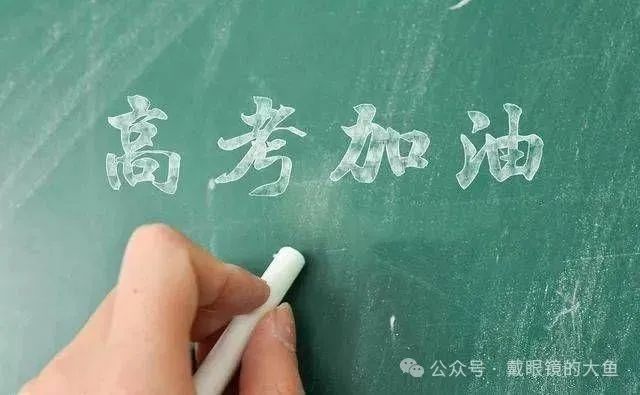 高考加油
公众号 · 戴眼镜的大鱼